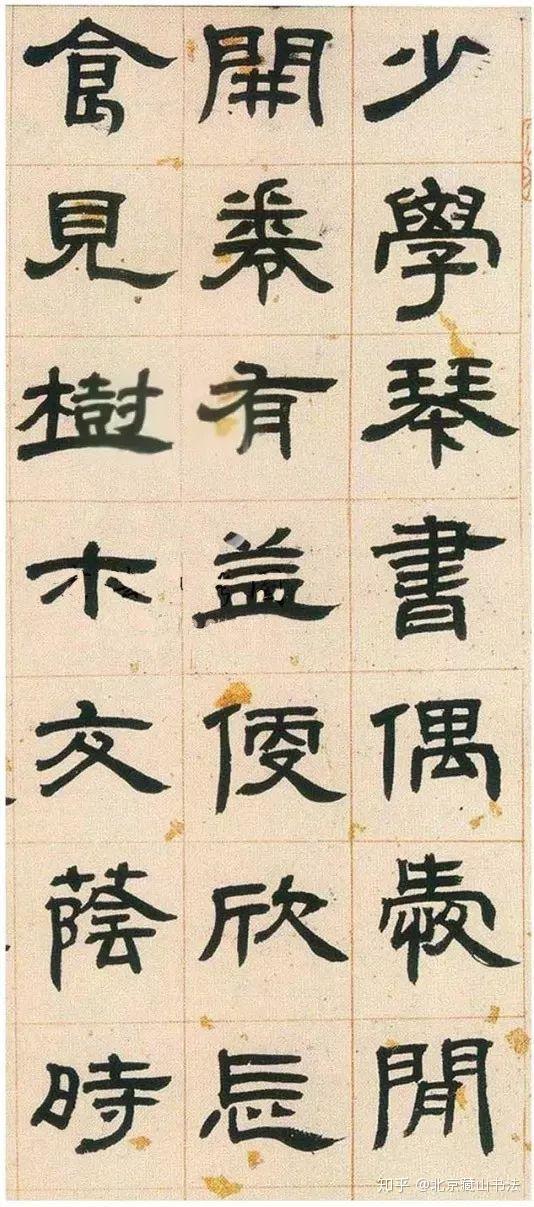 少學琴書偶愛閒
開卷有益便欣忘
食見樹木交蔭時
知乎 @北京藏山书法